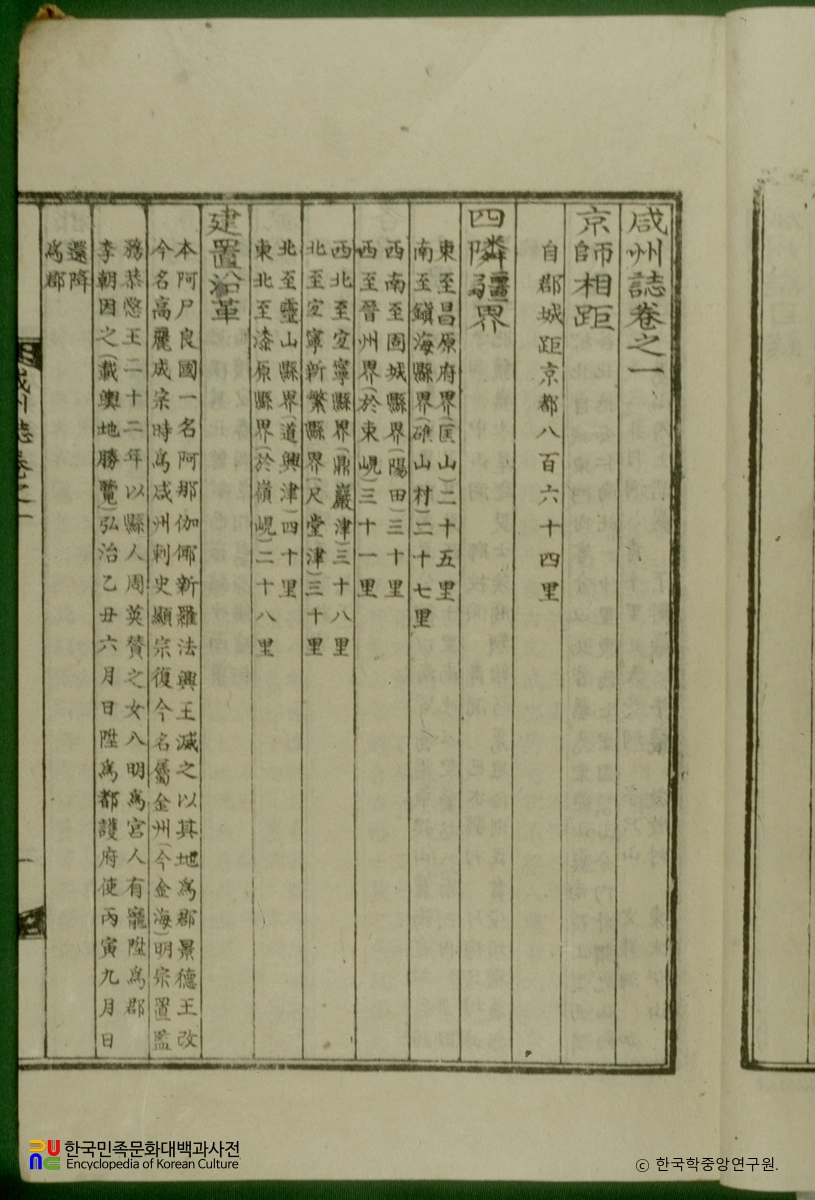 咸州誌卷之一
京師相距
自郡城距京都八百六十四里
四隣疆界
東至昌原府界(匡山)二十五里
南至鎭海縣界(碓山村)二十七里
西南至固城縣界(陽田)三十里
西至晉州界(於東峴)三十一里
西北至宜寧縣界(鼎巖津)三十八里
北至宜寧新繁縣界(尺堂津)三十里
北至靈山縣界(道興津)四十里
東北至漆原縣界(於嶺峴)二十八里
建置沿革
本阿尸良國一名阿那伽倻新羅法興王滅之以其地爲郡景德王改
今名高麗成宗時爲咸州刺史顯宗復今名屬金州(今金海)明宗置監
務恭愍王二十二年以縣人周英賛之女八明爲宮人有寵陞爲郡
李朝因之(載輿地勝覽)弘治乙丑六月日陞爲都護府使丙寅九月日
還降
爲郡
咸州誌卷之一
一
한국민족문화대백과사전
Encyclopedia of Korean Culture
© 한국학중앙연구원.